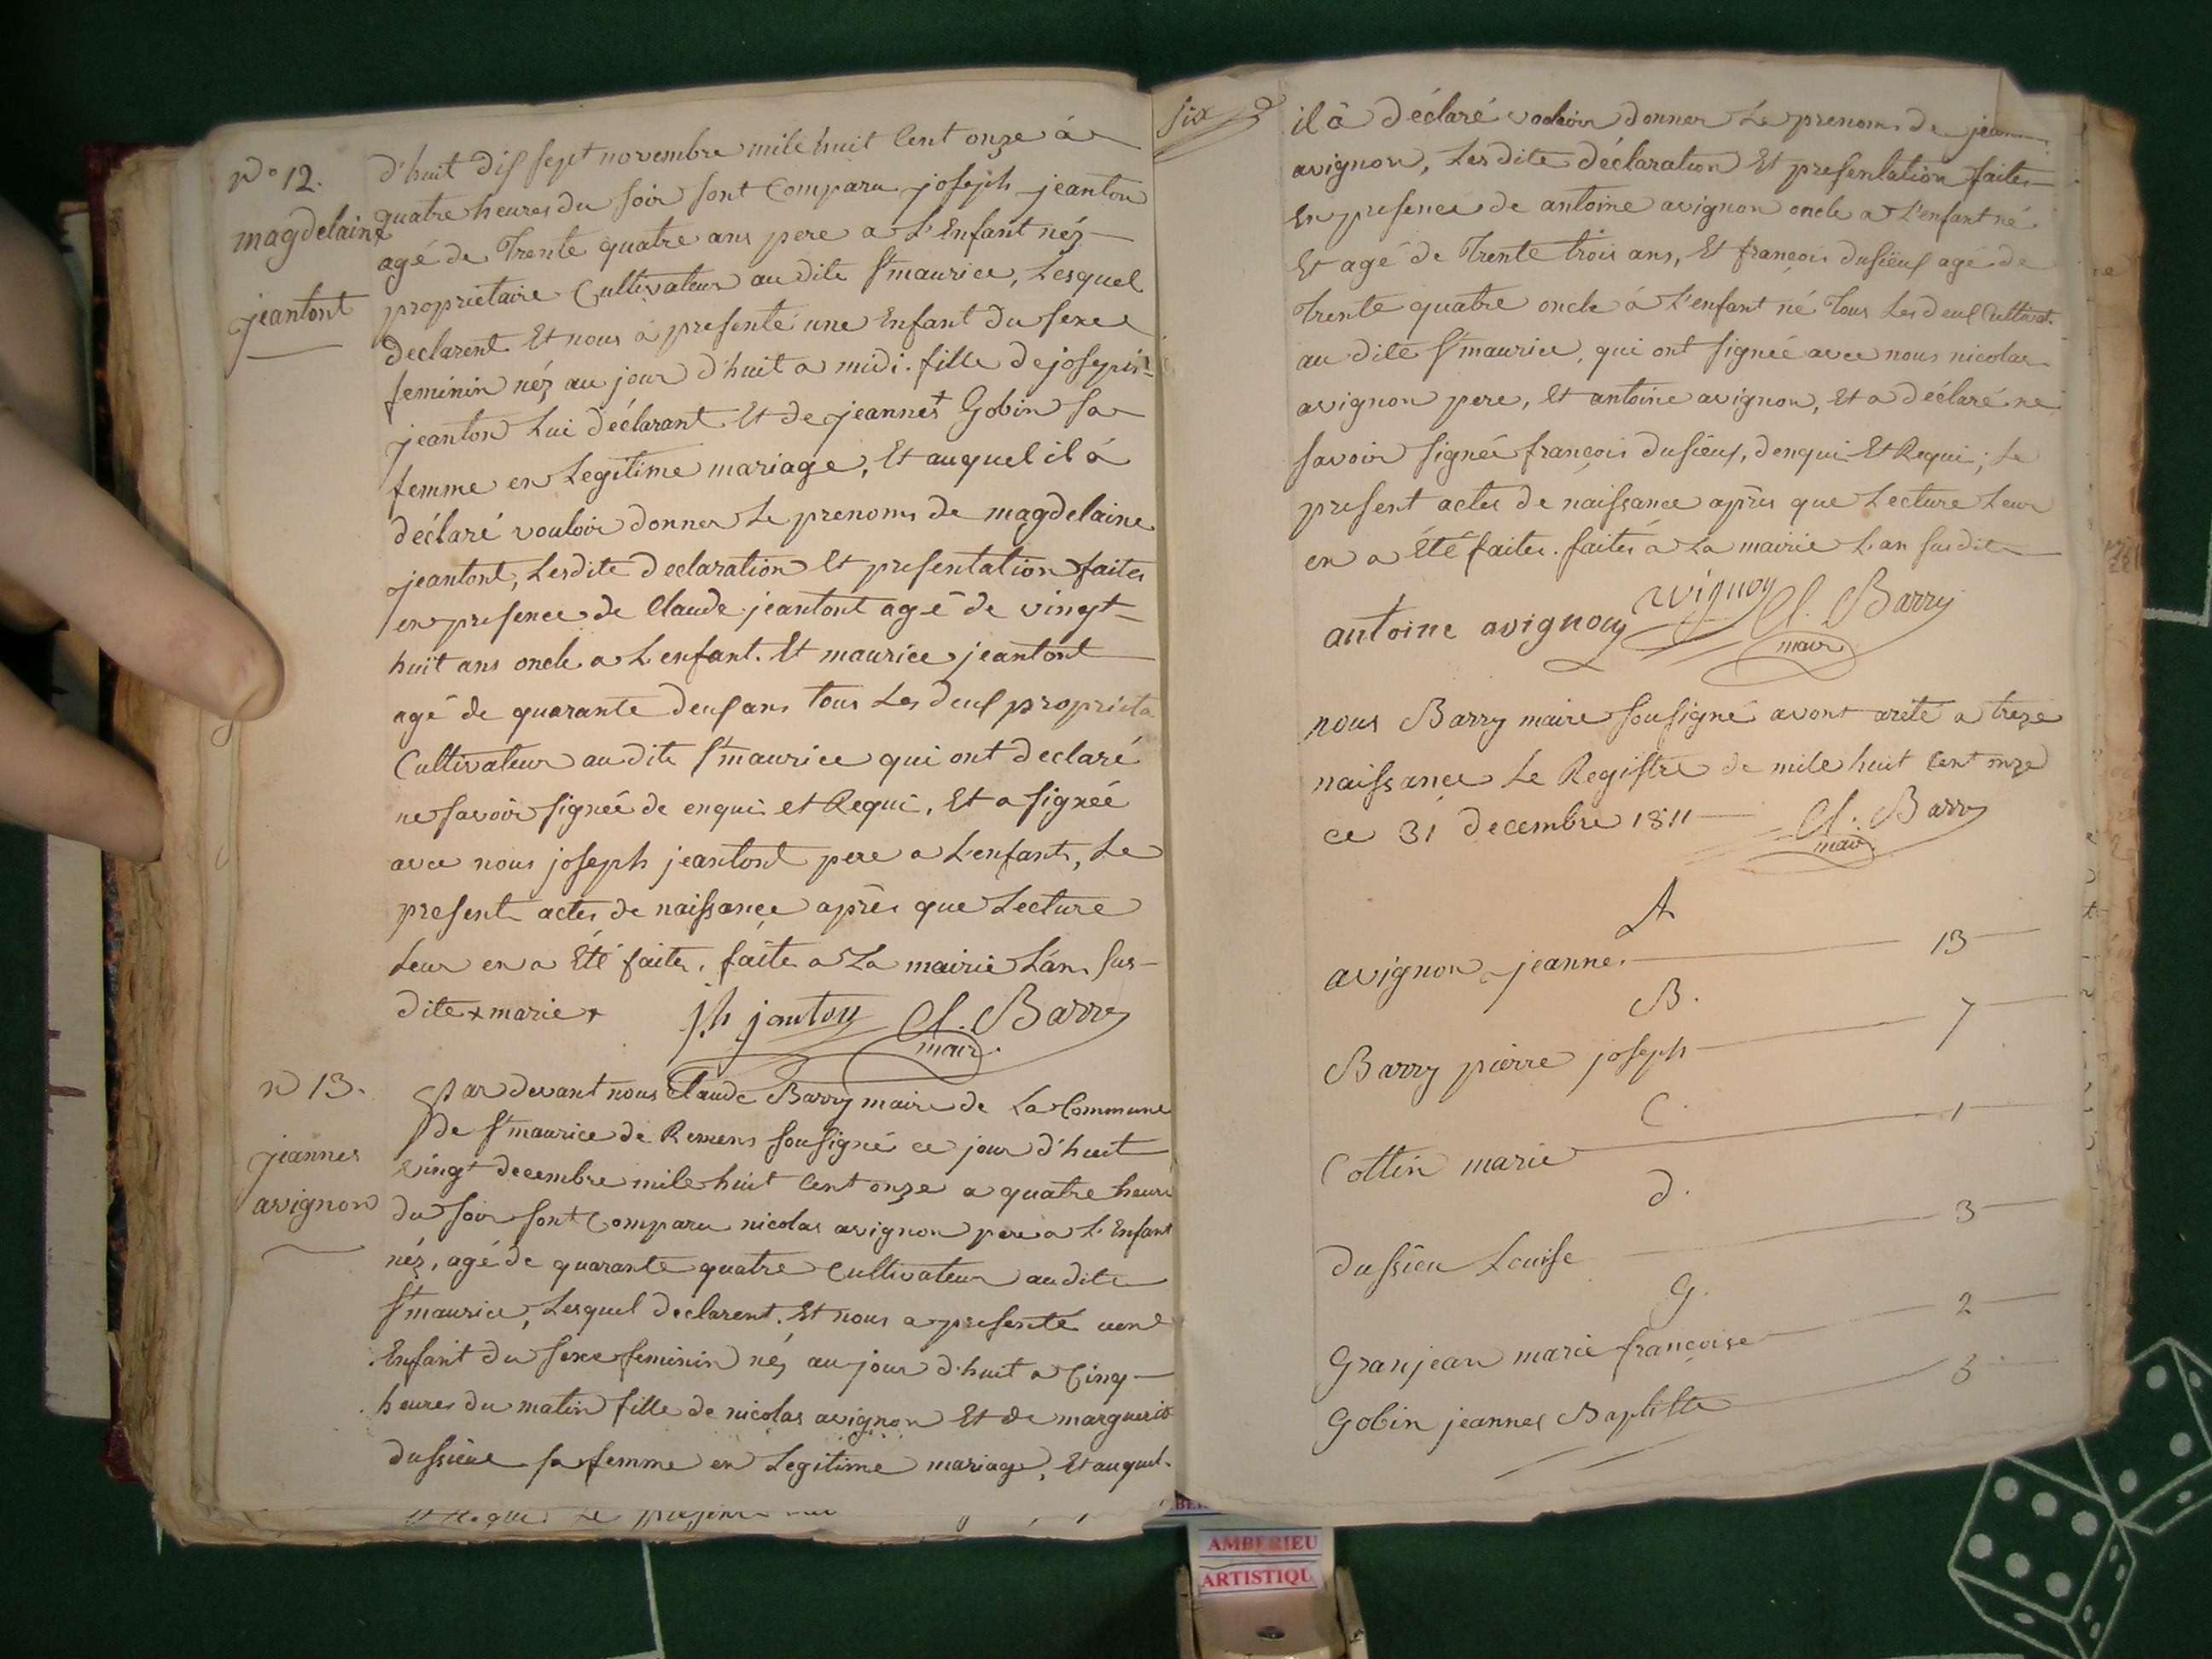 No 12.
magdelaine
jeantont
d'huit dix sept novembre mile huit Cent onze á
quatre heures du soir sont Comparu joseph jeanton
agé de Trente quatre ans pere a L'Enfant néz
proprietaire Cultivateur au dite St maurice, Lesquel
declarent Et nous a presenté une Enfant du sexe
feminin néz au jour d'huit a midi. fille de joseph
jeanton Lui déclarant Et de jeanne + Gobin sa
femme en Legitime mariage, Et auquel il á
déclaré vouloir donner Le prenoms de magdelaine
jeantont, Lesdite declaration Et presentation faites
en presence de Claude jeantont agé de vingt
huit ans oncle a L'enfant. Et maurice jeantont
agé de quarante deux ans tous Les deux proprieta
Cultivateur au dite St maurice qui ont declaré
ne savoir signée de enqui et Requi, Et a signée
avec nous joseph jeantont pere a L'enfant, Le
present actes de naissance après que Lecture
Leur en a Eté faites. faite a La mairie L'an sus-
dite + marie +
jh janton Cl. Barry
mair
n 13.
jeannes
avignon
Par devant nous Claude Barry maire de La Commune
de St maurice de Remens sousigné ce jour d'huit
vingt decembre mile huit Cent onze a quatre heures
du soir sont Comparu nicolas avignon pere a L'Enfant
néz, agé de quarante quatre Cultivateur au dite
St maurice, Lesquel declarent. Et nous a presenté une
Enfant du sexe feminin néz au jour d'huit a Cinq
heures du matin fille de nicolas avignon Et de marguerite
dussieue sa femme en Legitime mariage, Et auquel.
six
il á déclaré vouloir donner Le prenoms de jeanne
avignon, Lesdite déclaration Et presentation faites
En presence de antoine avignon oncle a L'enfant né
Et agé de Trente trois ans, Et françois dusieux agé de
Trente quatre oncle á L'enfant né Tous Les deux Cultivat.
au dite St maurice, qui ont signée avec nous nicolas
avignon pere, Et antoine avignon, Et a déclaré ne
savoir signée françois dusieux, denqui Et Requi, Le
present actes de naissance après que Lecture Leur
en a Eté faites. faites a La mairie L'an susdite
antoine avignon avignon Cl. Barry
mair
nous Barry maire sousigné avont arété a treze
naissance Le Registre de mile huit Cent onze
ce 31 decembre 1811 Cl. Barry
mair
A
avignon jeanne. 13
B.
Barry pierre joseph 7
C.
Cottin marie 1
d.
dussieu Louise 3
G.
Granjean marie françoise 2
Gobin jeannes Baptiste 5
AMBERIEU
ARTISTIQU